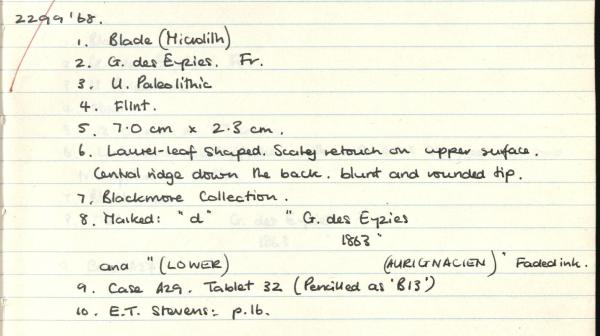 2299'68.
1. Blade (Microlith)
2. G. des Eyzies. Fr.
3. U. Paleolithic
4. Flint.
5. 7.0 cm x 2.3 cm.
6. Laurel-leaf shaped. Scaley retouch on upper surface.
Central ridge down the back. blunt and rounded tip.
7. Blackmore Collection.
8. Marked: "d" "G. des Eyzies
1863"
and "(LOWER) (AURIGNACIEN)" Faded ink.
9. Case A29. Tablet 32 (Pencilled as 'B13')
10. E.T. Stevens: p.16.